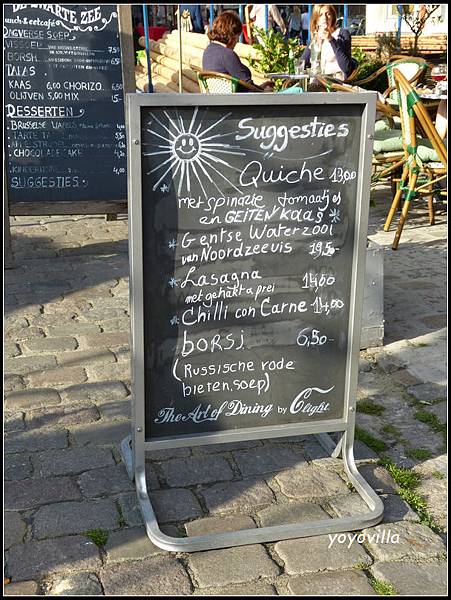 DE ZWARTE ZEE
lunch and eetcafé
DAGVERSE SOEP
VISSOEP
BORSJ
TAPAS
KAAS
6,50 CHORIZO
OLIJVEN 5,00 MIX
DESSERTEN
BRUSSELSE
TARTE TATIN
APFELSTRUDEL
CHOCOLADECAKE
KINDER
4,00
SUGGESTIES
Suggesties
Quiche 13,00
met spinazie tomaatjes
en GEITENKAAS
* Gentse Waterzooi
van Noordzeevis 19,50
* Lasagna 14,00
met gehakt & prei
* Chilli con Carne 14,00
BORSJ 6,50
(Russische rode
bieten soep)
The Art of Dining by C light
yoyovilla